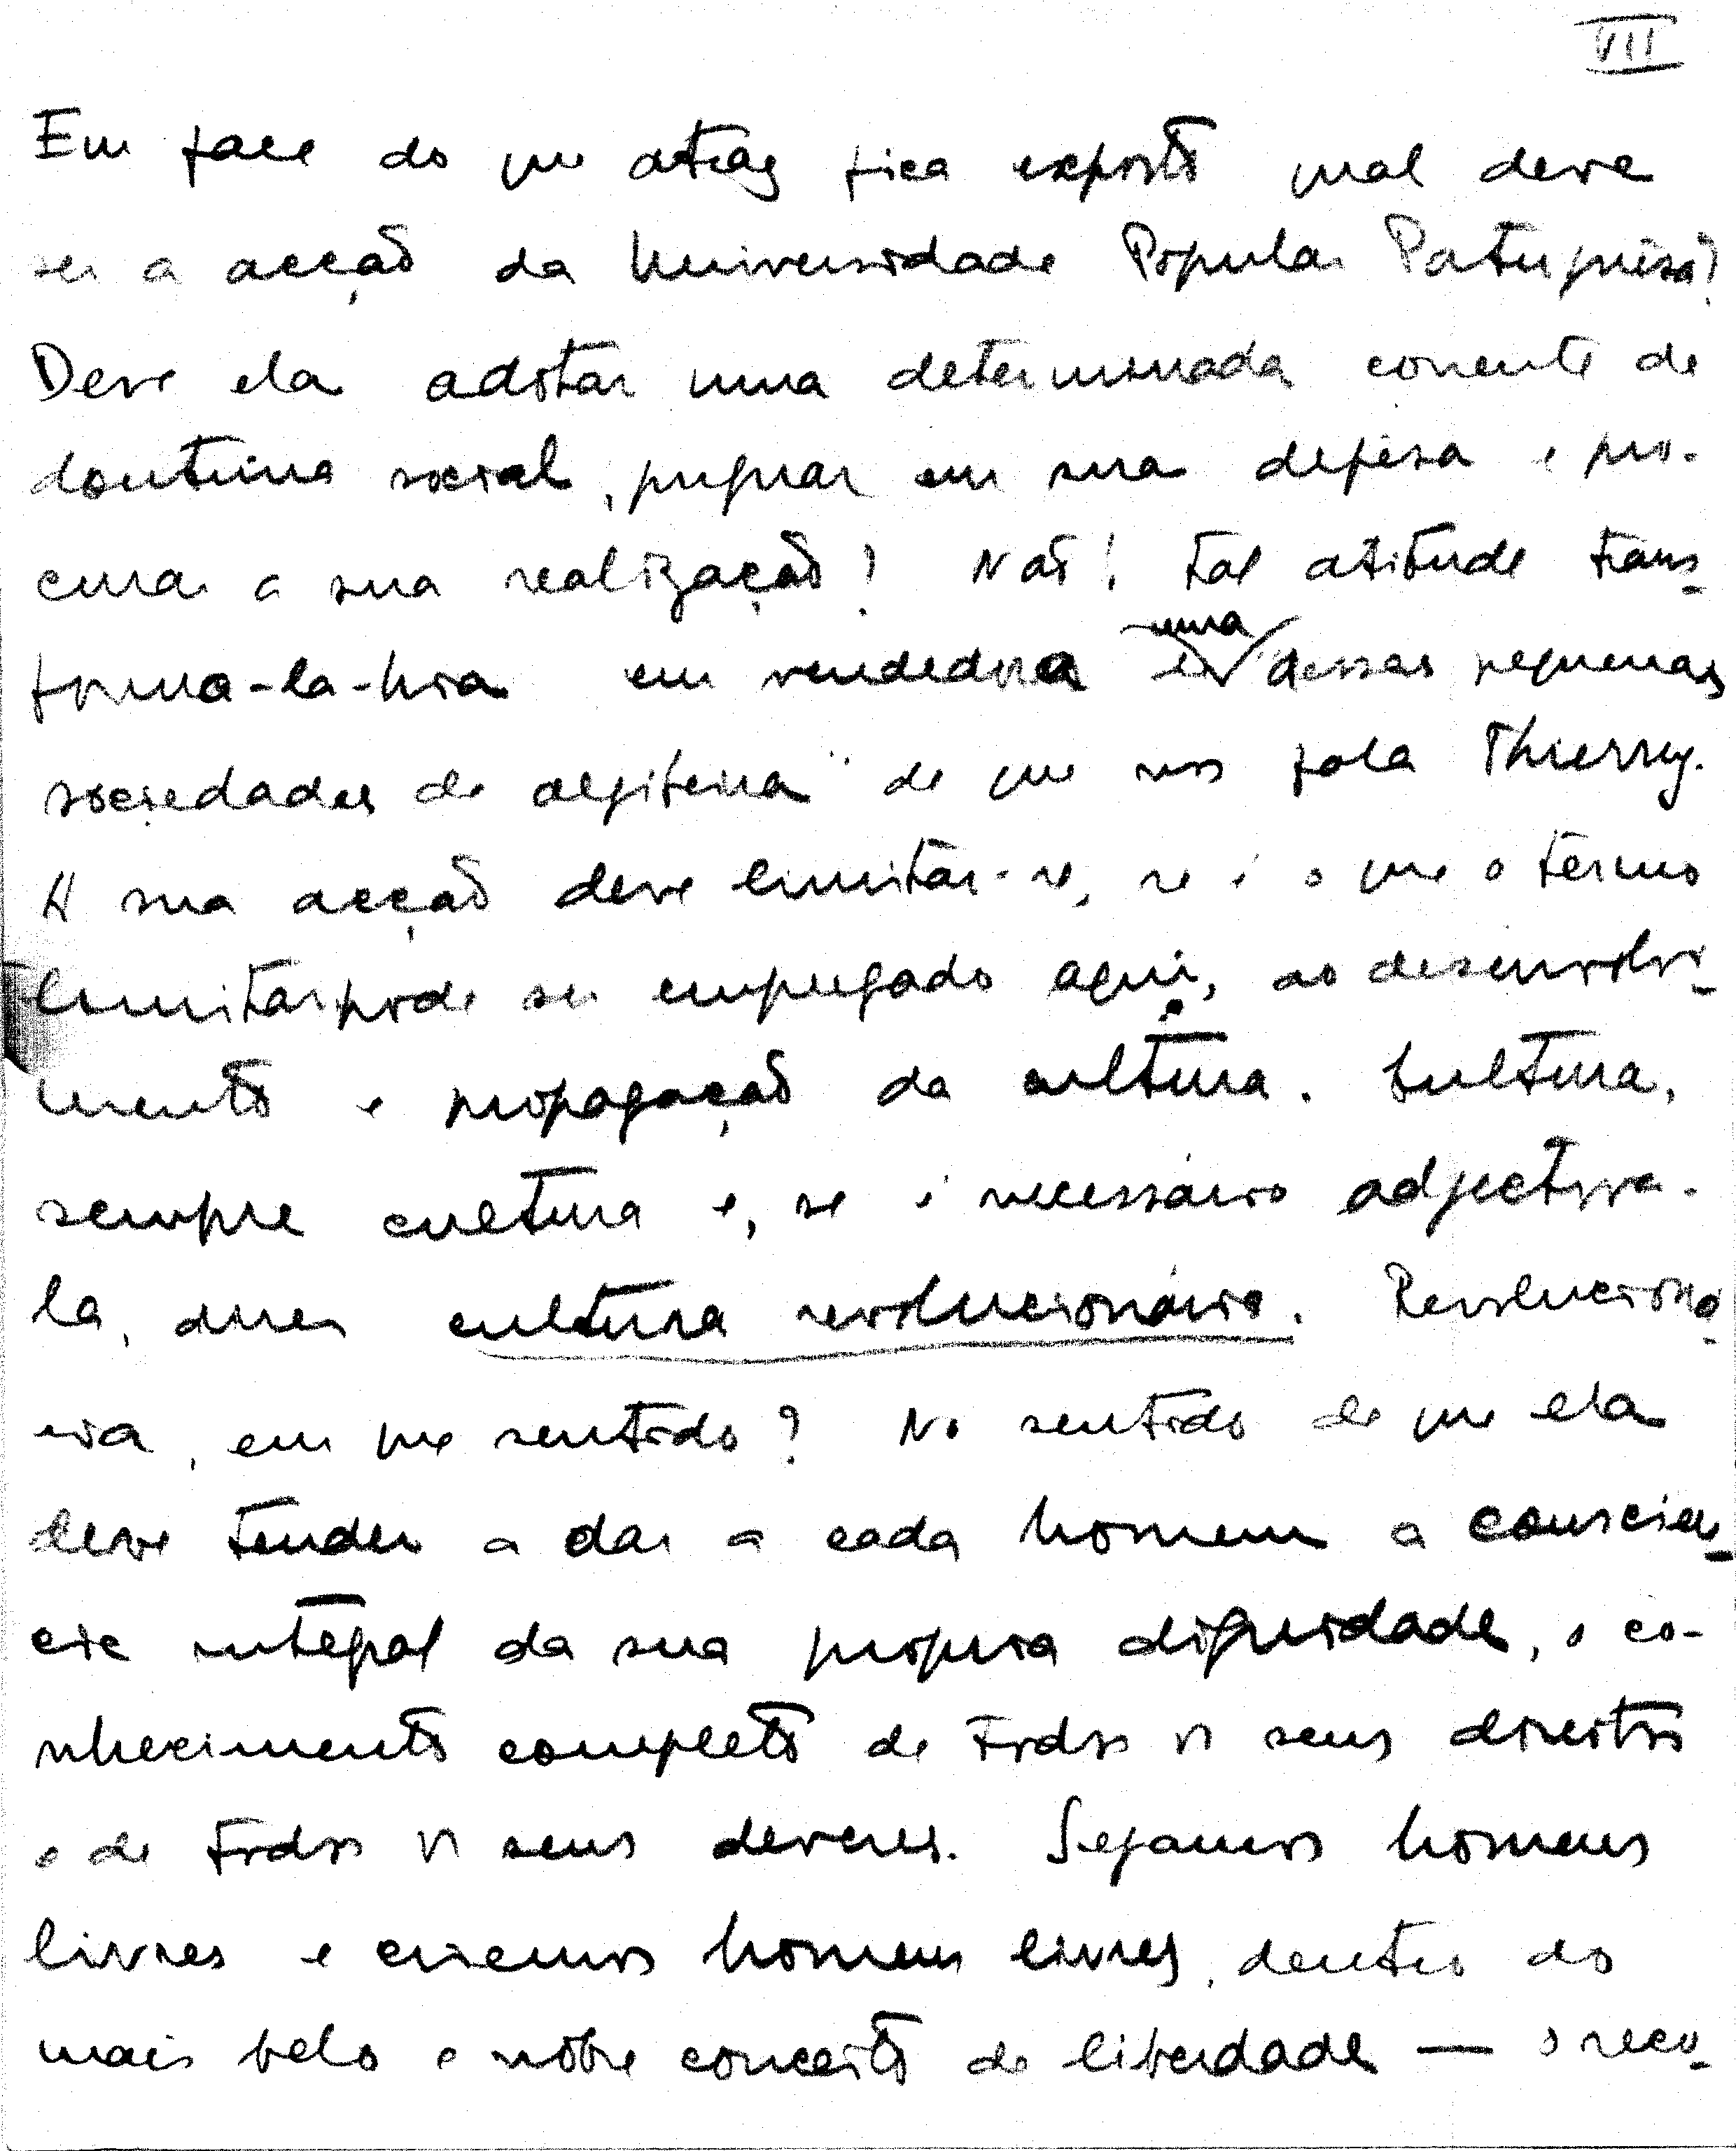 VII
Em face do que atrás fica exposto qual deve
ser a acção da Universidade Popular Portuguêsa?
Deve ela adotar uma determinada corrente de
doutrina social, pugnar em sua defêsa e pro-
curar a sua realização? Não! Tal atitude trans-
forma-la-hia em verdadeira uma dessas pequenas
sociedades de
de que nos fala Thierry.
A sua acção deve limitar-se, se é o que o têrmo
limitar pode ser empregado aqui, ao desenvolvi-
mento e propagação da cultura. Cultura,
sempre cultura e, se é necessário adjectiva-
la, direi cultura revolucionária. Revolucioná-
ria, em que sentido? No sentido de que ela
deve tender a dar a cada homem a consciên-
cia integral da sua propria dignidade, o co-
nhecimento completo de todos os seus direitos
e de todos os seus deveres. Sejamos homens
livres e criemos homens livres, dentro do
mais belo e nobre conceito de liberdade — o reco-